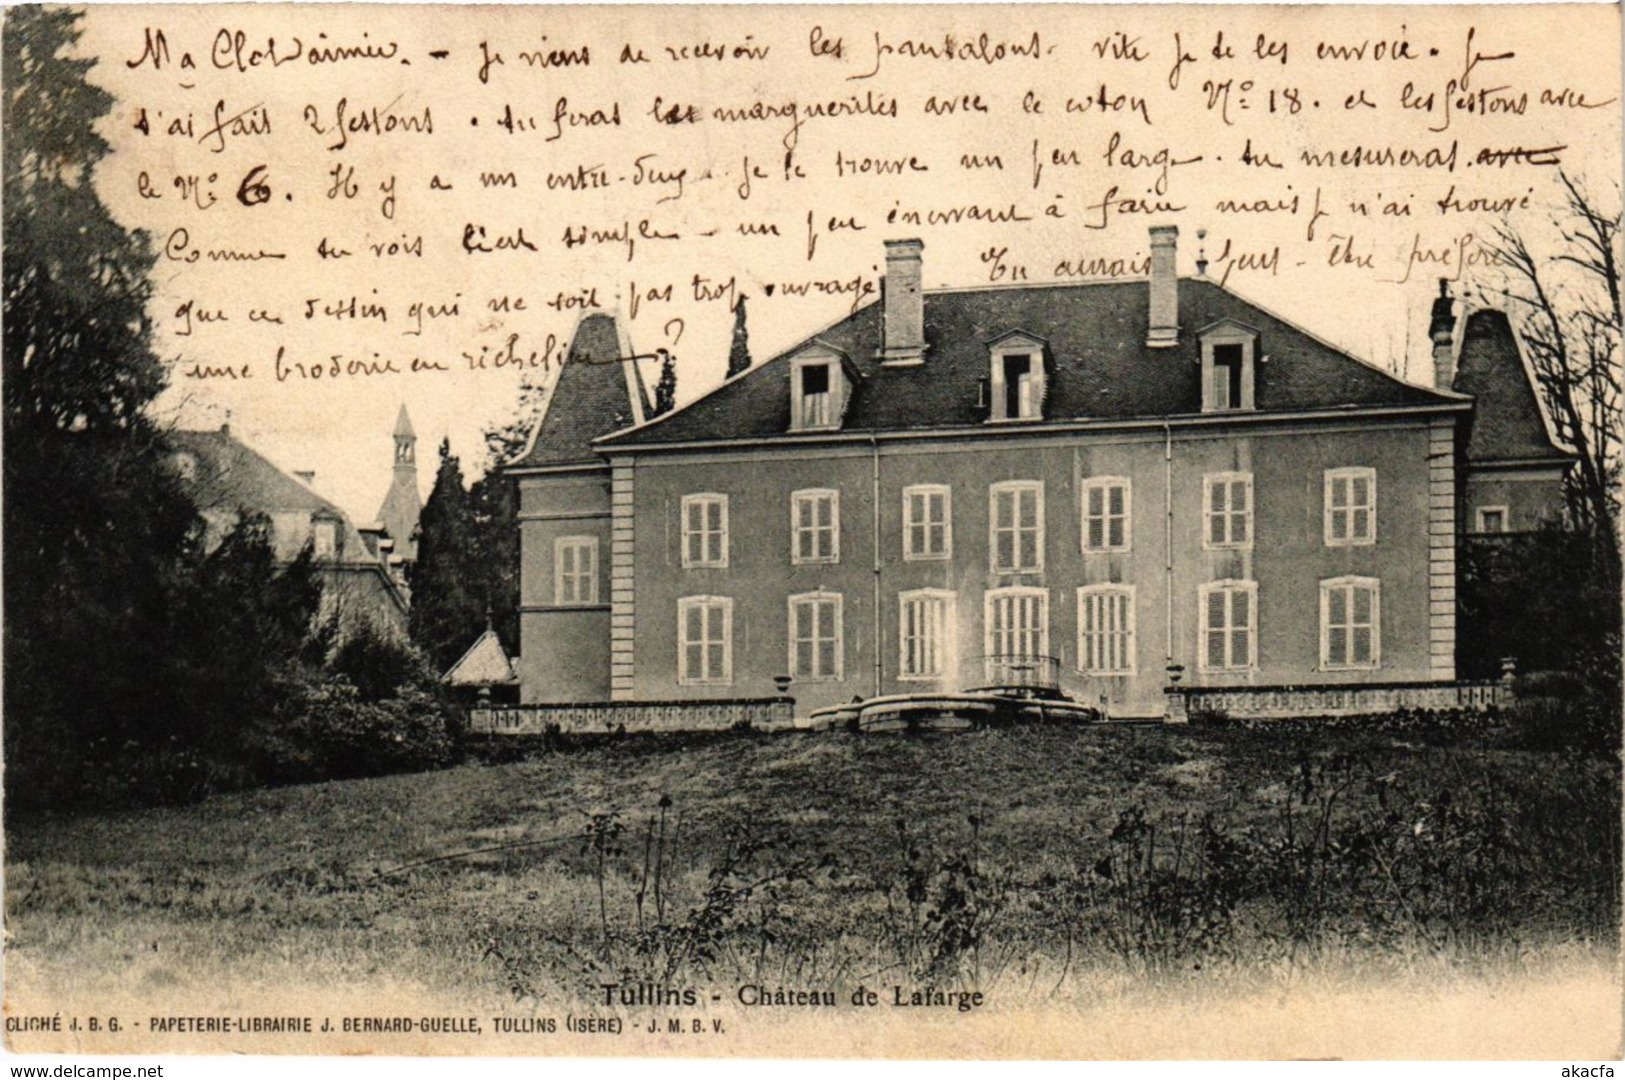 Ma Clo d'aimée. – Je viens de recevoir les pantalons. vite je te les envoie. Je
t'ai fait 2 festons. tu feras les marguerites avec le coton N° 18. et les festons avec
le N° 6. Il y a un entre-deux. Je le trouve un peu large. tu mesureras avec
Comme tu vois c'est simple – un peu énervant à faire mais je n'ai trouvé
que ce dessin qui ne soit pas trop ouvragé Tu aurais peut-être préféré
une broderie en richelieu – ?
Tullins - Château de Lafarge
CLICHÉ J. B. G. - PAPETERIE-LIBRAIRIE J. BERNARD-GUELLE, TULLINS (ISÈRE) - J. M. B. V.
akacfa